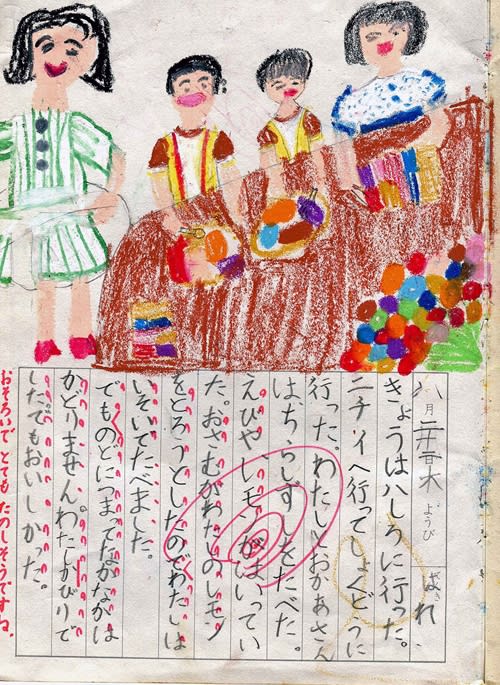 八月 ようび はれ
きょうは八しろに行った。
ニチイへ行ってしょくどうに
行った。わたしとおかあさん
はぢらしずしをたべた。
えびや、レモンがはいってい
た。おさむがわたしのレモン
をとろうとしたのでわたしは
いそいでたべました。
でものどにつまってなかなかは
かどりません。わたしがびりで
したでもおいしかった。
おそろいで とても たのしそうですね。